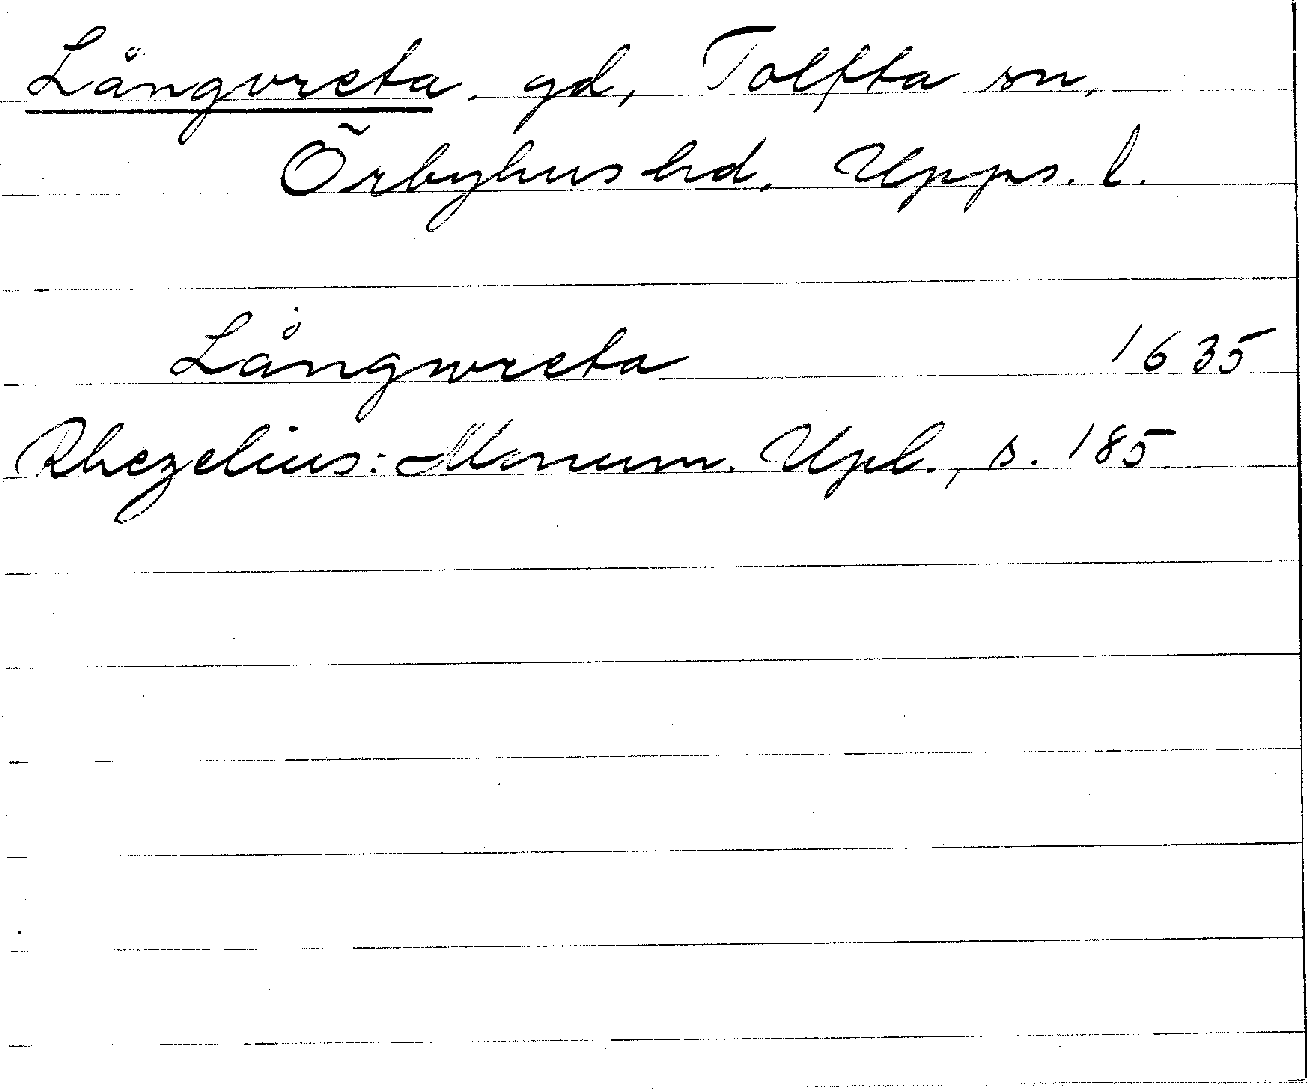 Långvreta, gd, Tolfta sn,
Örbyhus hd, Upps. l.
Långwreta 1635
Rhezelius: Monum. Upl., s. 185